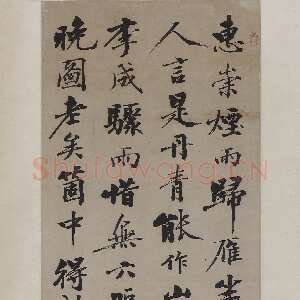 惠崇煙雨歸雁坐
人言是丹青能作
李成驟雨惜無六
晚圖老矣箇中得
Shufawang.CN